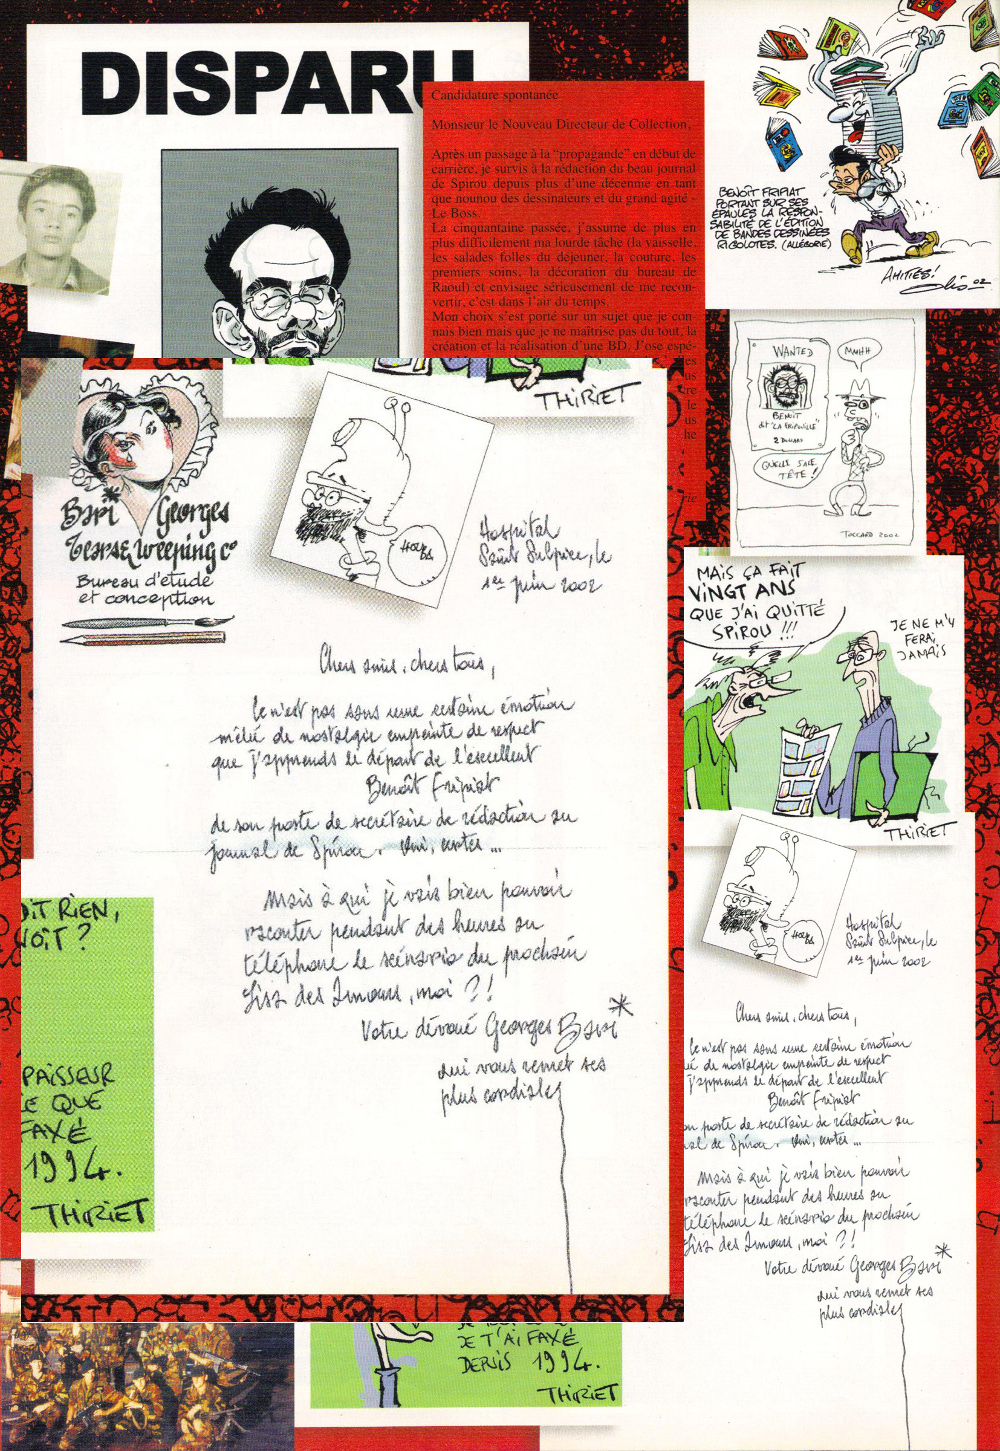 DISPARU
Candidature spontanée
Monsieur le Nouveau Directeur de Collection,
Après un passage à la "propagande" en début de
carrière, je survis à la rédaction du beau journal
de Spirou depuis plus d'une décennie en tant
que nounou des dessinateurs et du grand agité -
Le Boss.
La cinquantaine passée, j'assume de plus en
plus difficilement ma lourde tâche (la vaisselle,
les salades folles du déjeuner, la couture, les
premiers soins, la décoration du bureau de
Raoul) et envisage sérieusement de me recon-
vertir, c'est dans l'air du temps.
Mon choix s'est porté sur un sujet que je con-
nais bien mais que je ne maîtrise pas du tout, la
création et la réalisation d'une BD. J'ose espé-
les
us
re
le
us
he
rie
BENOÎT FRIPIAT
PORTANT SUR SES
ÉPAULES LA RESPON-
SABILITÉ DE L'ÉDITION
DE BANDES DESSINÉES
RIGOLOTES. (ALLÉGORIE)
AMITIÉS!
02
WANTED
BENOIT
dit "LA FRIPOUILLE"
2 DOLLARS
MMHH
QUELLE SALE
TÊTE!
TOCCARD 2002
MAIS ÇA FAIT
VINGT ANS
QUE J'AI QUITTÉ
SPIROU !!!
JE NE M'Y
FERAI
JAMAIS
THIRIET
THIRIET
Bari Georges
Tears & Weeping C°
Bureau d'étude
et conception
HOUBA
Hospital
Saint Sulpice, le
1er juin 2002
Chers amis, chers tous,
Ce n'est pas sans une certaine émotion
mêlée de nostalgie empreinte de respect
que j'apprends le départ de l'excellent
Benoît Fripiat
de son poste de secrétaire de rédaction au
journal de Spirou. Oui, certes ...
Mais à qui je vais bien pouvoir
raconter pendant des heures au
téléphone le scénario du prochain
Lisa des Imours, moi ?!
Votre dévoué Georges Bari*
qui vous remet ses
plus cordiales
DIT RIEN,
NOÎT ?
PAISSEUR
CE QUE
FAXÉ
1994.
THIRIET
HOUBA
Hospital
Saint Sulpice, le
1er juin 2002
Chers amis, chers tous,
Ce n'est pas sans une certaine émotion
ée de nostalgie empreinte de respect
j'apprends le départ de l'excellent
Benoît Fripiat
on poste de secrétaire de rédaction au
nal de Spirou. Oui, certes ...
Mais à qui je vais bien pouvoir
raconter pendant des heures au
téléphone le scénario du prochain
Lisa des Imours, moi ?!
Votre dévoué Georges Bari*
qui vous remet ses
plus cordiales
JE T'AI FAXÉ
DEPUIS 1994.
THIRIET